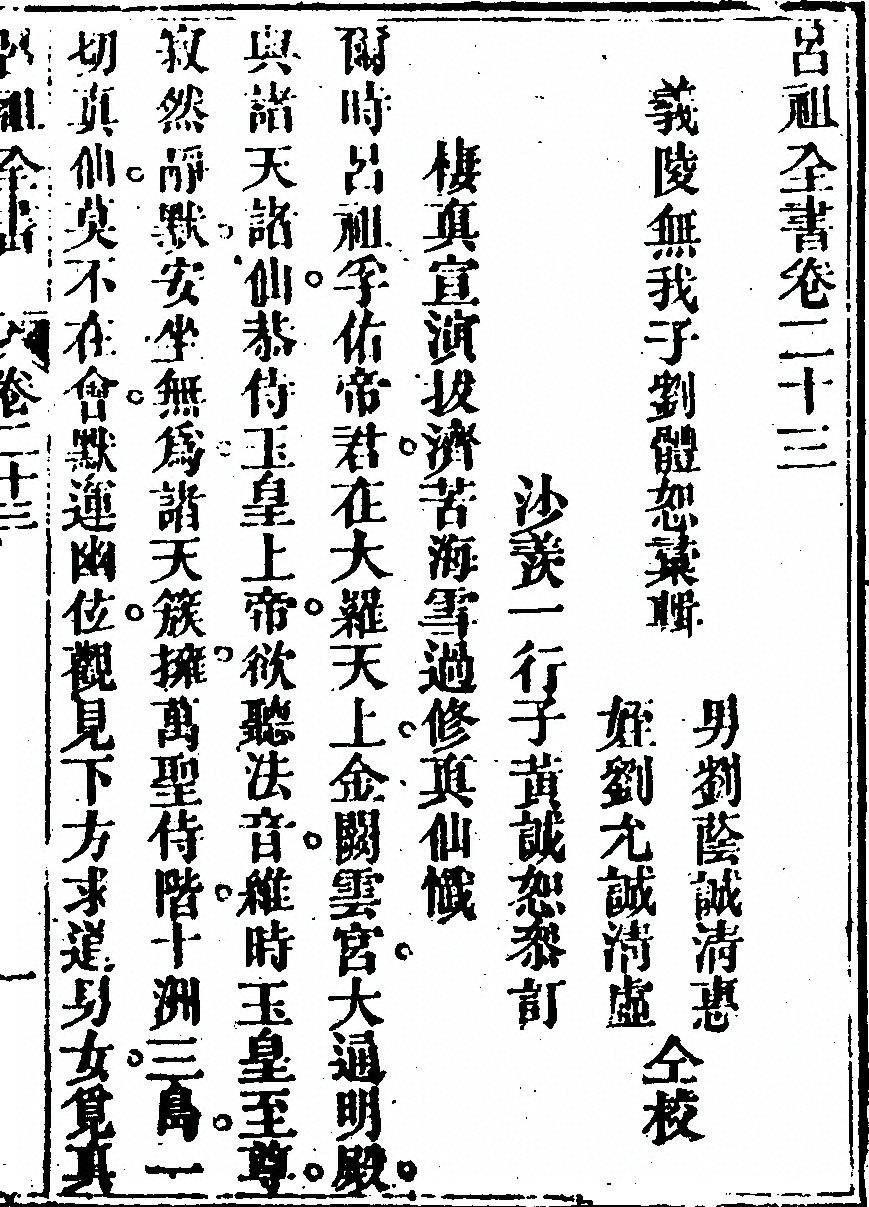 呂祖全書卷二十三
義陵無我子劉體恕彙輯
男劉蔭誠清惠
姪劉允誠清虛
仝校
沙羨一行子黃誠恕參訂
棲真宣演拔濟苦海雪過修真仙懺
爾時呂祖孚佑帝君在大羅天上金闕雲宮大通明殿
與諸天諸仙恭侍玉皇上帝欲聽法音維時玉皇至尊
寂然靜默安坐無為諸天簇擁萬聖侍階十洲三島一
切真仙莫不在會默運幽位觀見下方求道男女覓真
呂祖全書 卷二十三 一